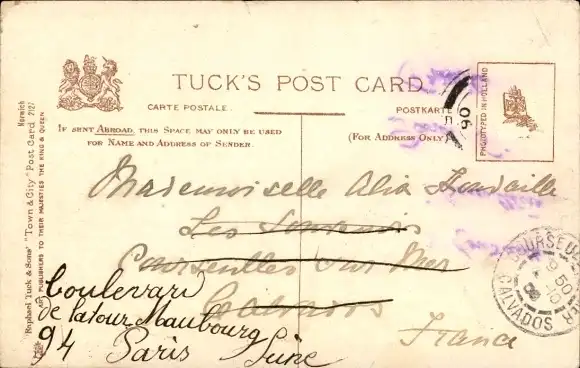 TUCK'S POST CARD
CARTE POSTALE.
POSTKARTE
IF SENT ABROAD, THIS SPACE MAY ONLY BE USED
FOR NAME AND ADDRESS OF SENDER.
(FOR ADDRESS ONLY)
PHOTOTYPED IN HOLLAND
06
Norwich
2127
Raphael Tuck & Sons' "Town & City" Post Card
ART PUBLISHERS TO THEIR MAJESTIES THE KING & QUEEN
Mademoiselle
Les
Courseulles sur Mer
Calvados
France
Boulevard
de Latour Maubourg
94 Paris Seine
COURSEULLES
MER
CALVADOS